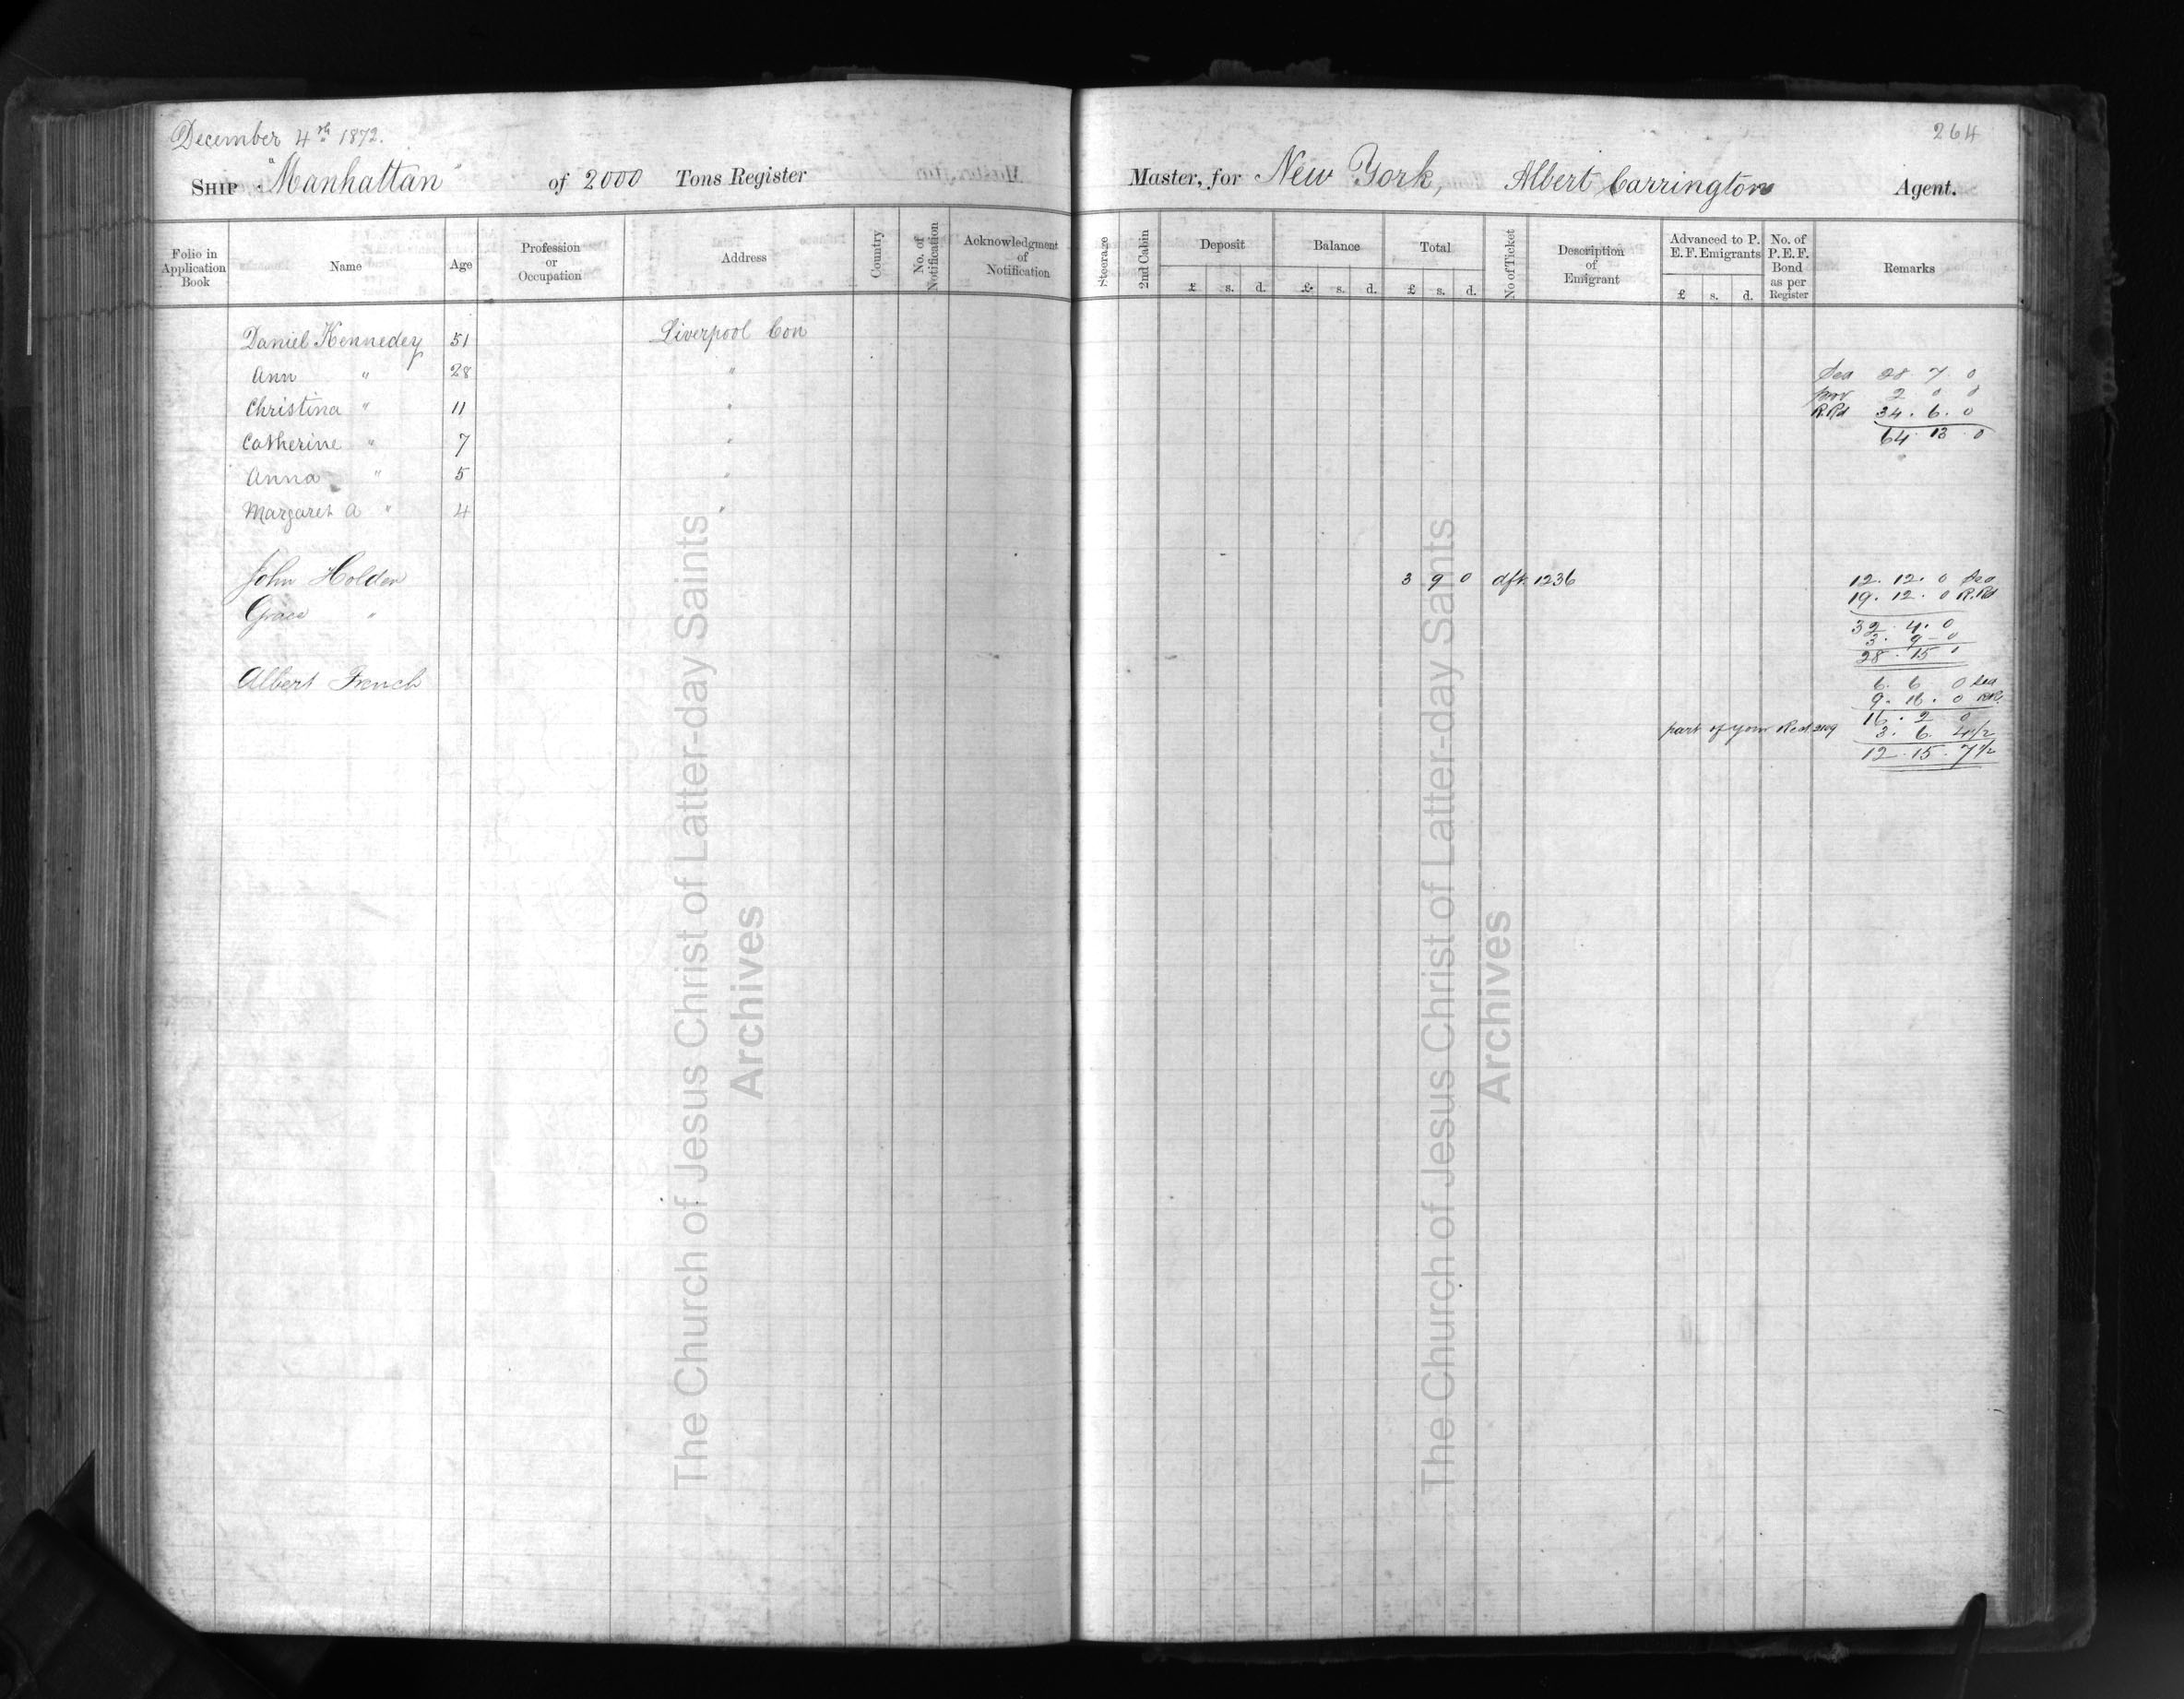 December 4th 1872.
264
SHIP "Manhattan" of 2000 Tons Register
Master, for New York, Albert Carrington Agent.
Folio in Application Book
Name
Age
Profession or Occupation
Address
Country
No. of Notification
Acknowledgment of Notification
Steerage
2nd Cabin
Deposit £ s. d.
Balance £ s. d.
Total £ s. d.
No of Ticket
Description of Emigrant
Advanced to P. E. F. Emigrants £ s. d.
No. of P. E. F. Bond as per Register
Remarks
Daniel Kennedey 51 Liverpool Con
Ann " 28 " Sea 28 7. 0
Christina " 11 " prov 2 0 0
R.Rd 34. 6. 0
Catherine " 7 " 64 13 0
Anna " 5 "
Margaret A " 4 "
John Holden 3 9 0 dft 1236 12. 12. 0 Sea
19. 12. 0 R.Rd
Grace " 32. 4. 0
3. 9-0
28. 15
Albert French 6. 6 0 Sea
9. 16. 0
16. 2 0
part of your 3. 6. 4 1/2
12. 15. 7 1/2
The Church of Jesus Christ of Latter-day Saints
Archives
The Church of Jesus Christ of Latter-day Saints
Archives